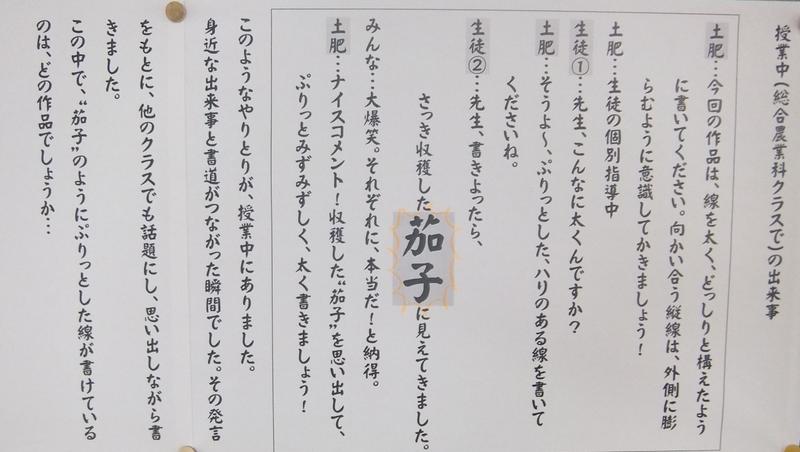 授業中（総合農業科クラスで）の出来事
土肥…今回の作品は、線を太く、どっしりと構えたよう
に書いてください。向かい合う縦線は、外側に膨
らむように意識してかきましょう！
土肥…生徒の個別指導中
生徒①…先生、こんなに太くんですか？
土肥…そうよ～、ぷりっとした、ハリのある線を書いて
くださいね。
生徒②…先生、書きよったら、
さっき収穫した茄子に見えてきました。
みんな…大爆笑。それぞれに、本当だ！と納得。
土肥…ナイスコメント！収穫した“茄子”を思い出して、
ぷりっとみずみずしく、太く書きましょう！
このようなやりとりが、授業中にありました。
身近な出来事と書道がつながった瞬間でした。その発言
をもとに、他のクラスでも話題にし、思い出しながら書
きました。
この中で、“茄子”のようにぷりっとした線が書けている
のは、どの作品でしょうか…